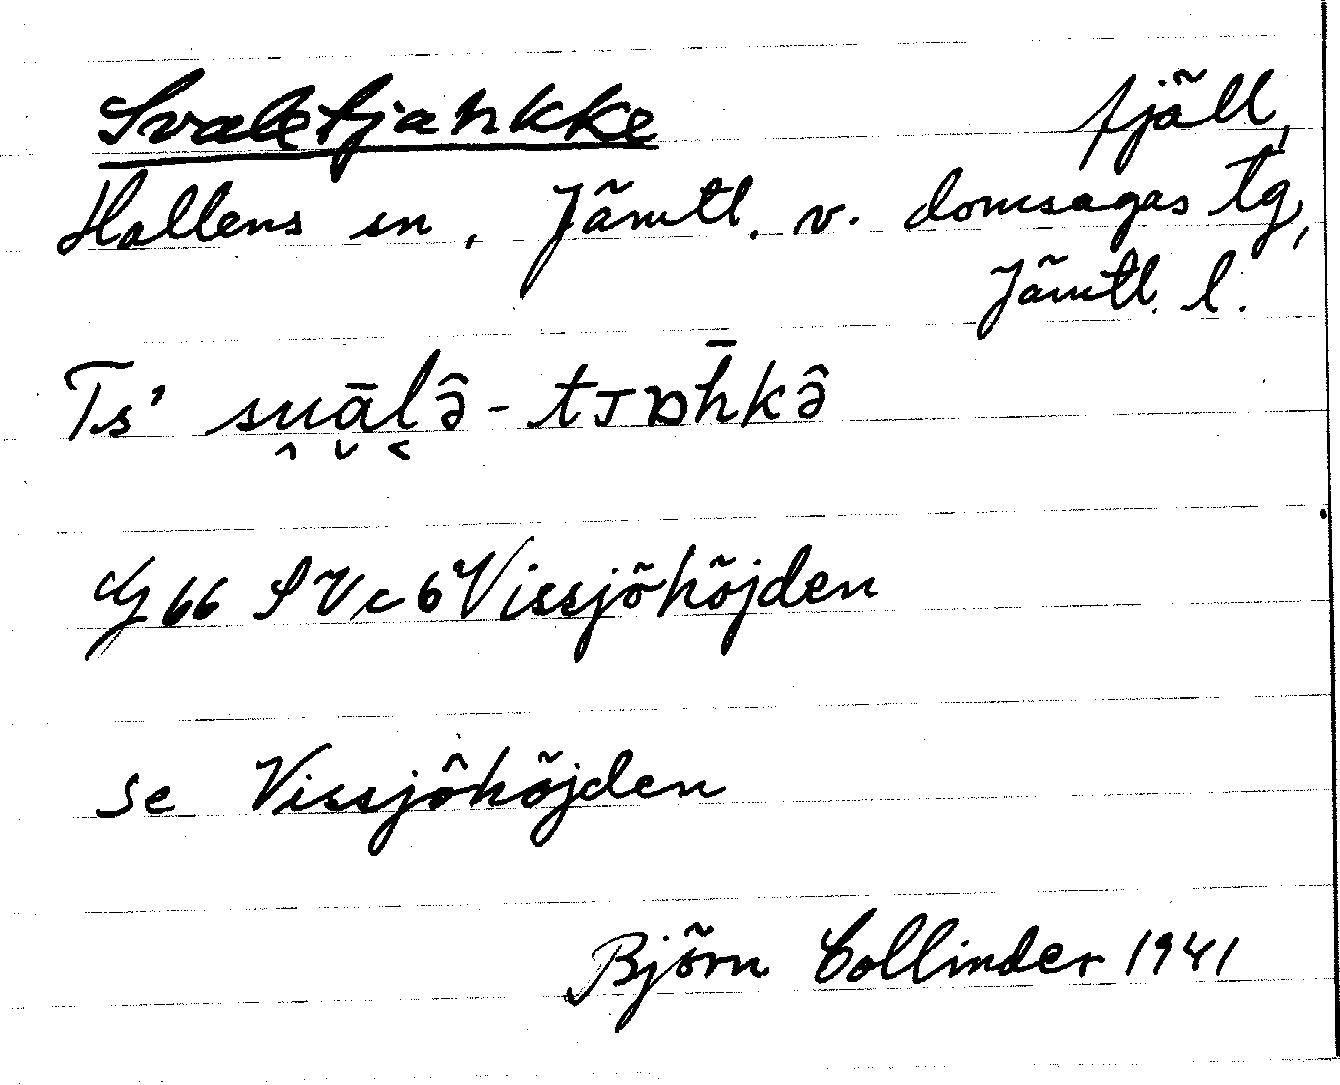 Svaletjahkke fjäll,
Hallens sn, Jämtl. v. domsagas tg,
Jämtl. l.
Ts' su̯ā̮l͔ə̂-tᴊᴅh̄kə̂
G 66 SV c 6 Vissjöhöjden
se Vissjöhöjden
Björn Collinder 1941